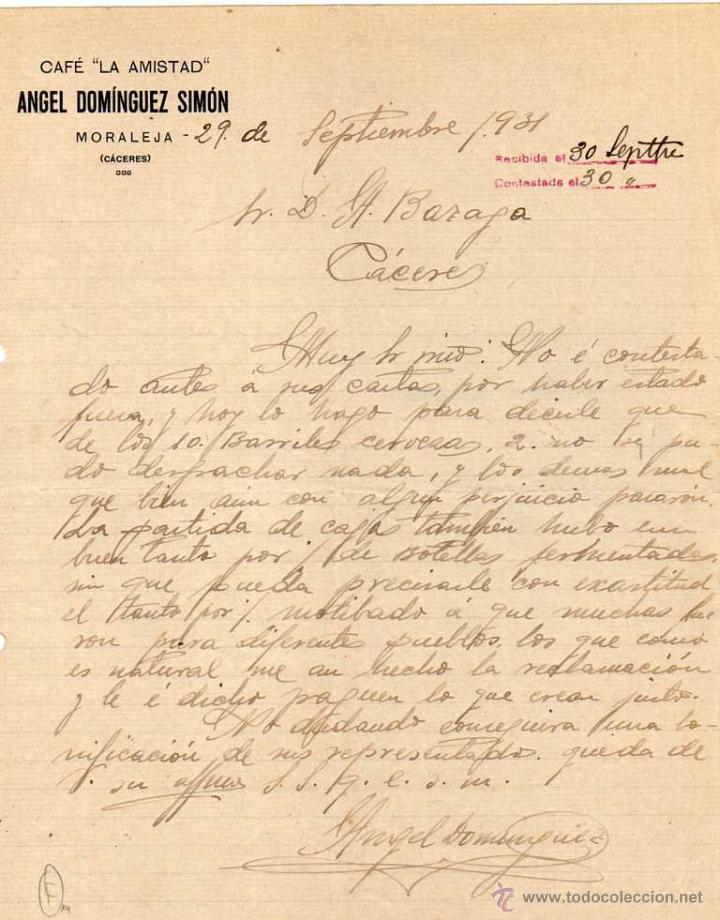 CAFÉ "LA AMISTAD"
ANGEL DOMÍNGUEZ SIMÓN
MORALEJA - 29. de Septiembre 1931
(CÁCERES)
Recibida el 30 Septtre
Contestada el 30 "
Sr. D. A. Bazaga
Cáceres
Muy Sr mio: No é contesta-
do antes á sus cartas, por haber estado
fuera, y hoy lo hago para decirle que
de los 10. Barriles cervezas, 2. no se pu-
do despachar nada, y los demas mal
que bien aun con algun perjuicio pasaron.
La partida de cajas tambien hubo un
buen tanto por / de Botellas fermentadas,
sin que pueda precisarle con exastitud
el tanto por /. motibado á que muchas fue
ron para diferentes pueblos, los que como
es natural me an hecho la reclamación
y le é dicho paguen lo que crean justo.
No dudando conseguira una bo-
nificación de sus representados. queda de
V. su affmo s. s. q. e. s. m.
Angel Dominguez
F
14
www.todocoleccion.net